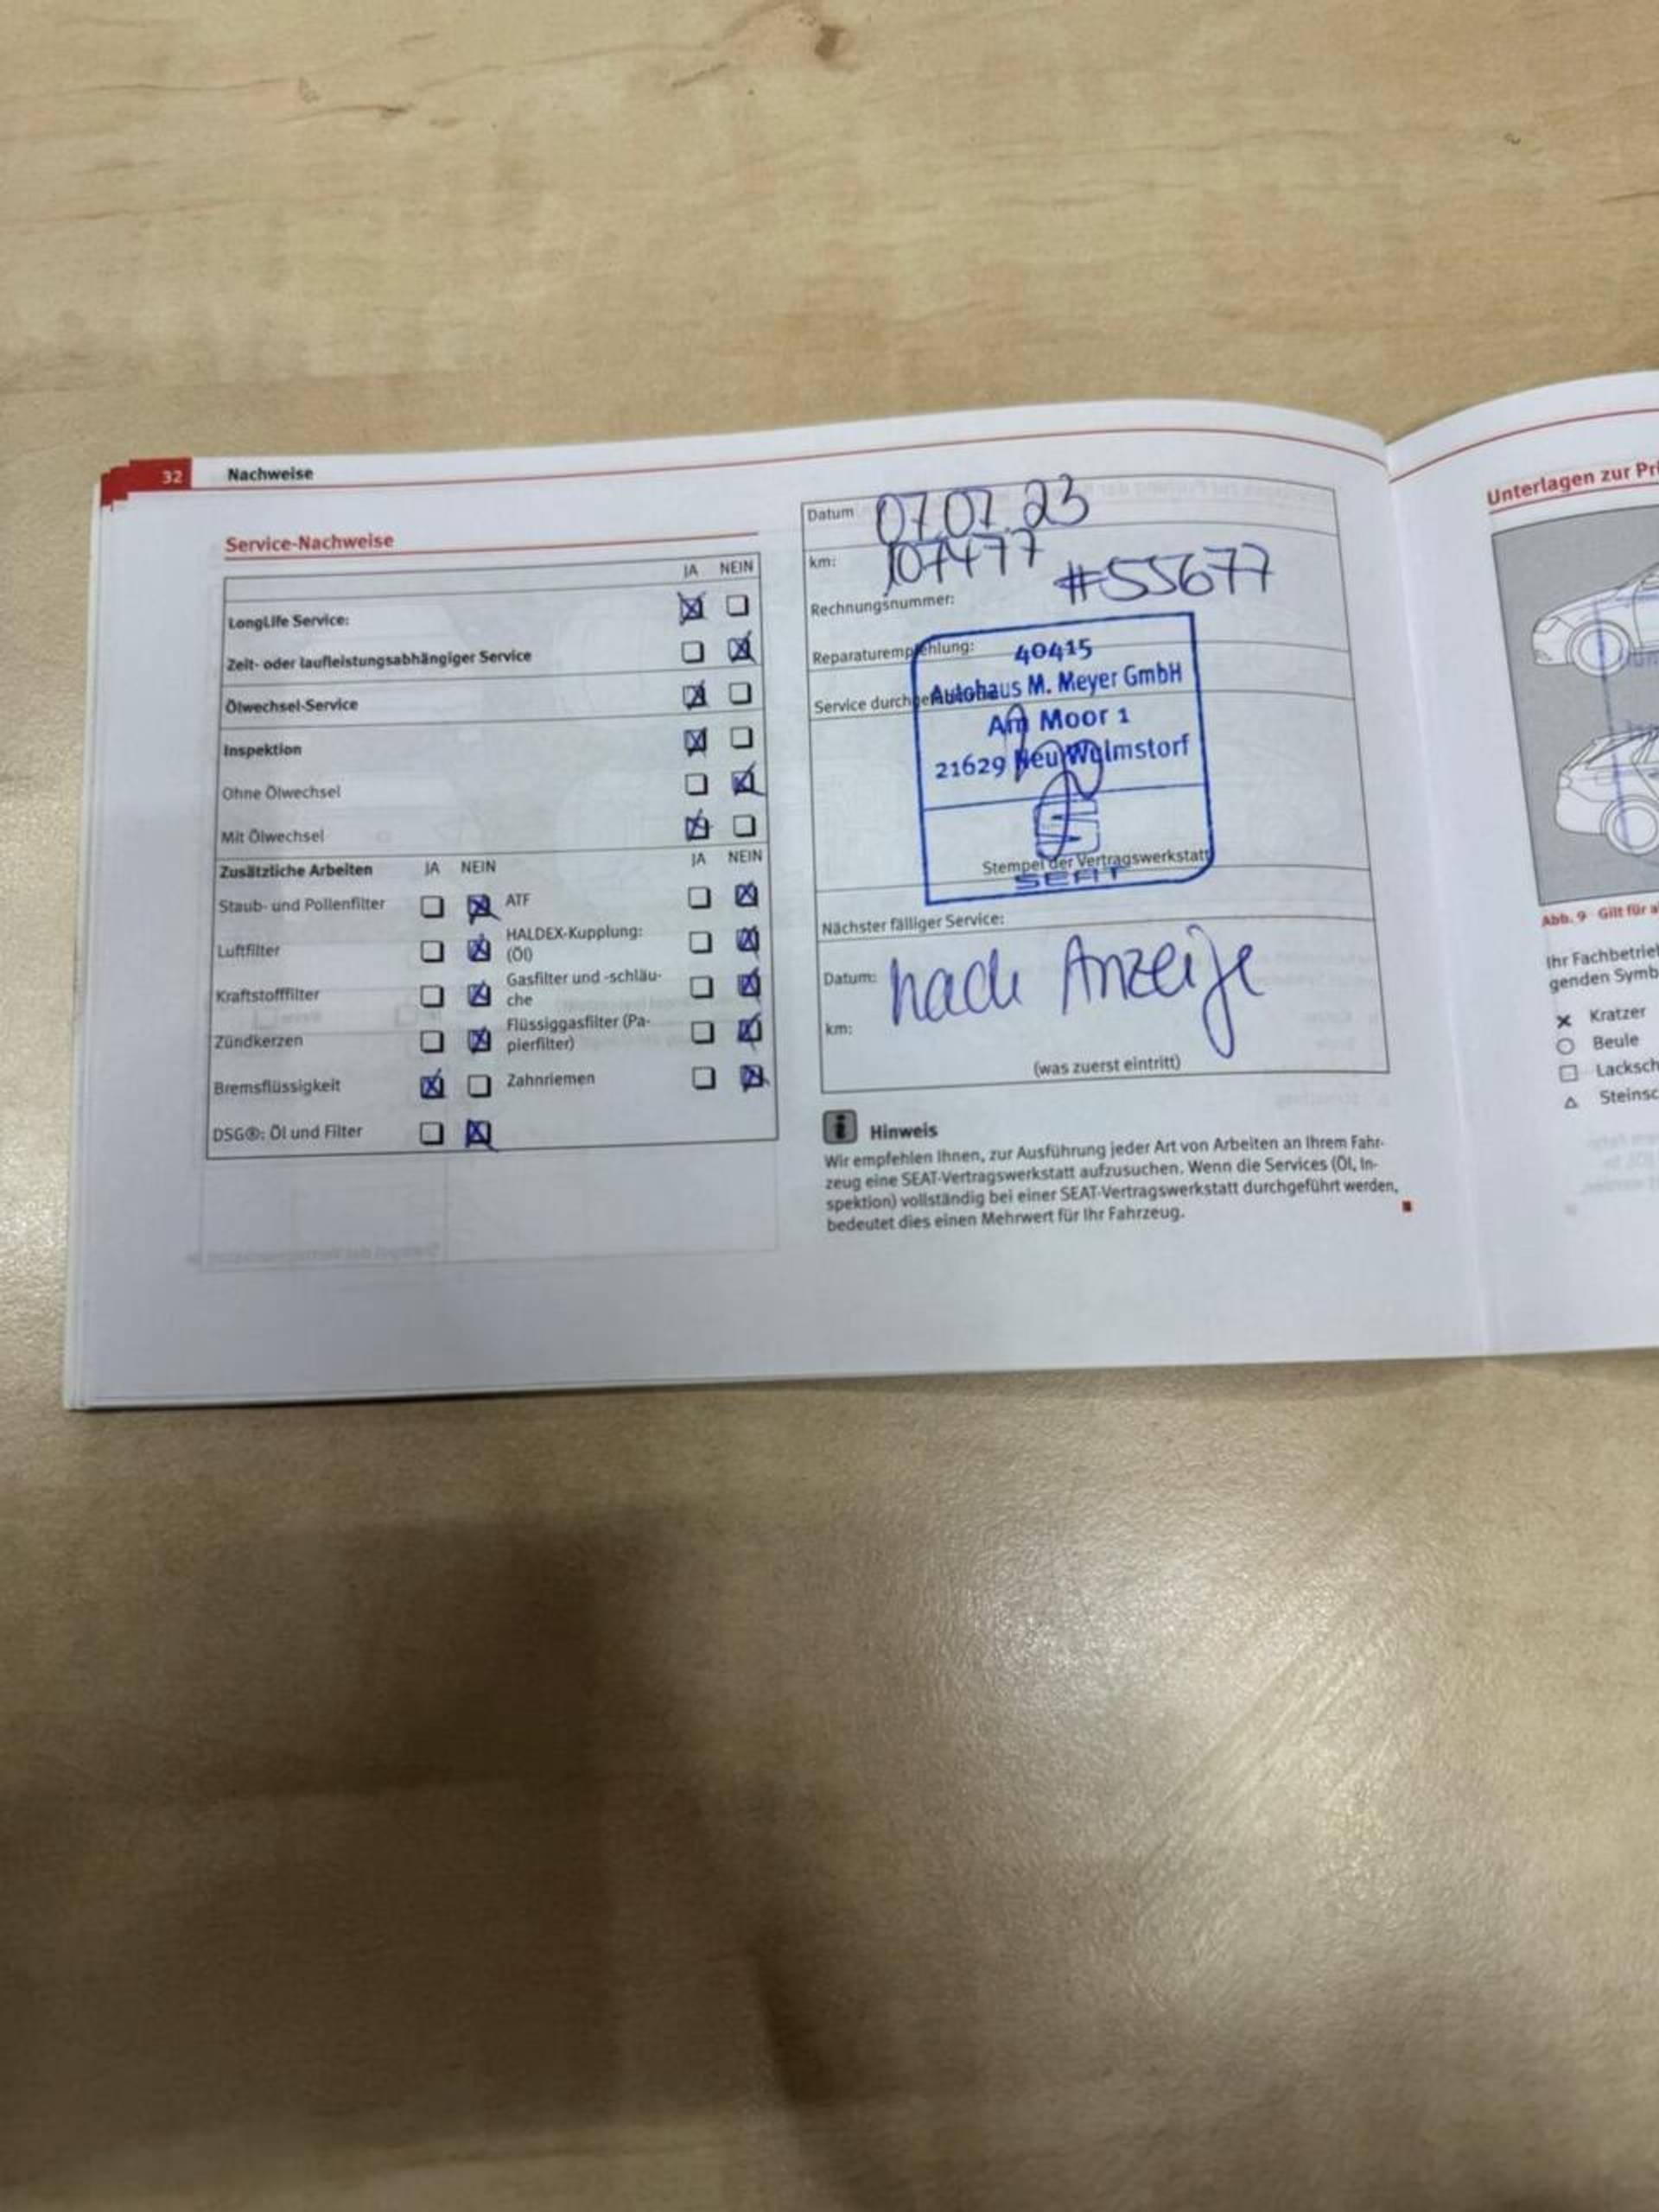 32 Nachweise
Service-Nachweise
JA NEIN
LongLife Service:
Zeit- oder laufleistungsabhängiger Service
Ölwechsel-Service
Inspektion
Ohne Ölwechsel
Mit Ölwechsel
Zusätzliche Arbeiten JA NEIN JA NEIN
Staub- und Pollenfilter
ATF
Luftfilter
HALDEX-Kupplung:
(Öl)
Kraftstofffilter
Gasfilter und -schläu-
che
Zündkerzen
Flüssiggasfilter (Pa-
pierfilter)
Bremsflüssigkeit
Zahnriemen
DSG®: Öl und Filter
Datum 07.07.23
km: 107477
#55677
Rechnungsnummer:
Reparaturempfehlung:
Service durch
40415
Autohaus M. Meyer GmbH
Am Moor 1
21629 Neu Wulmstorf
Stempel der Vertragswerkstatt
SEAT
Nächster fälliger Service:
Datum: nach Anzeige
km:
(was zuerst eintritt)
Hinweis
Wir empfehlen Ihnen, zur Ausführung jeder Art von Arbeiten an Ihrem Fahr-
zeug eine SEAT-Vertragswerkstatt aufzusuchen. Wenn die Services (Öl, In-
spektion) vollständig bei einer SEAT-Vertragswerkstatt durchgeführt werden,
bedeutet dies einen Mehrwert für Ihr Fahrzeug.
Unterlagen zur Pr
Abb. 9 Gilt für a
Ihr Fachbetrie
genden Symb
Kratzer
Beule
Lacksch
Steinsc